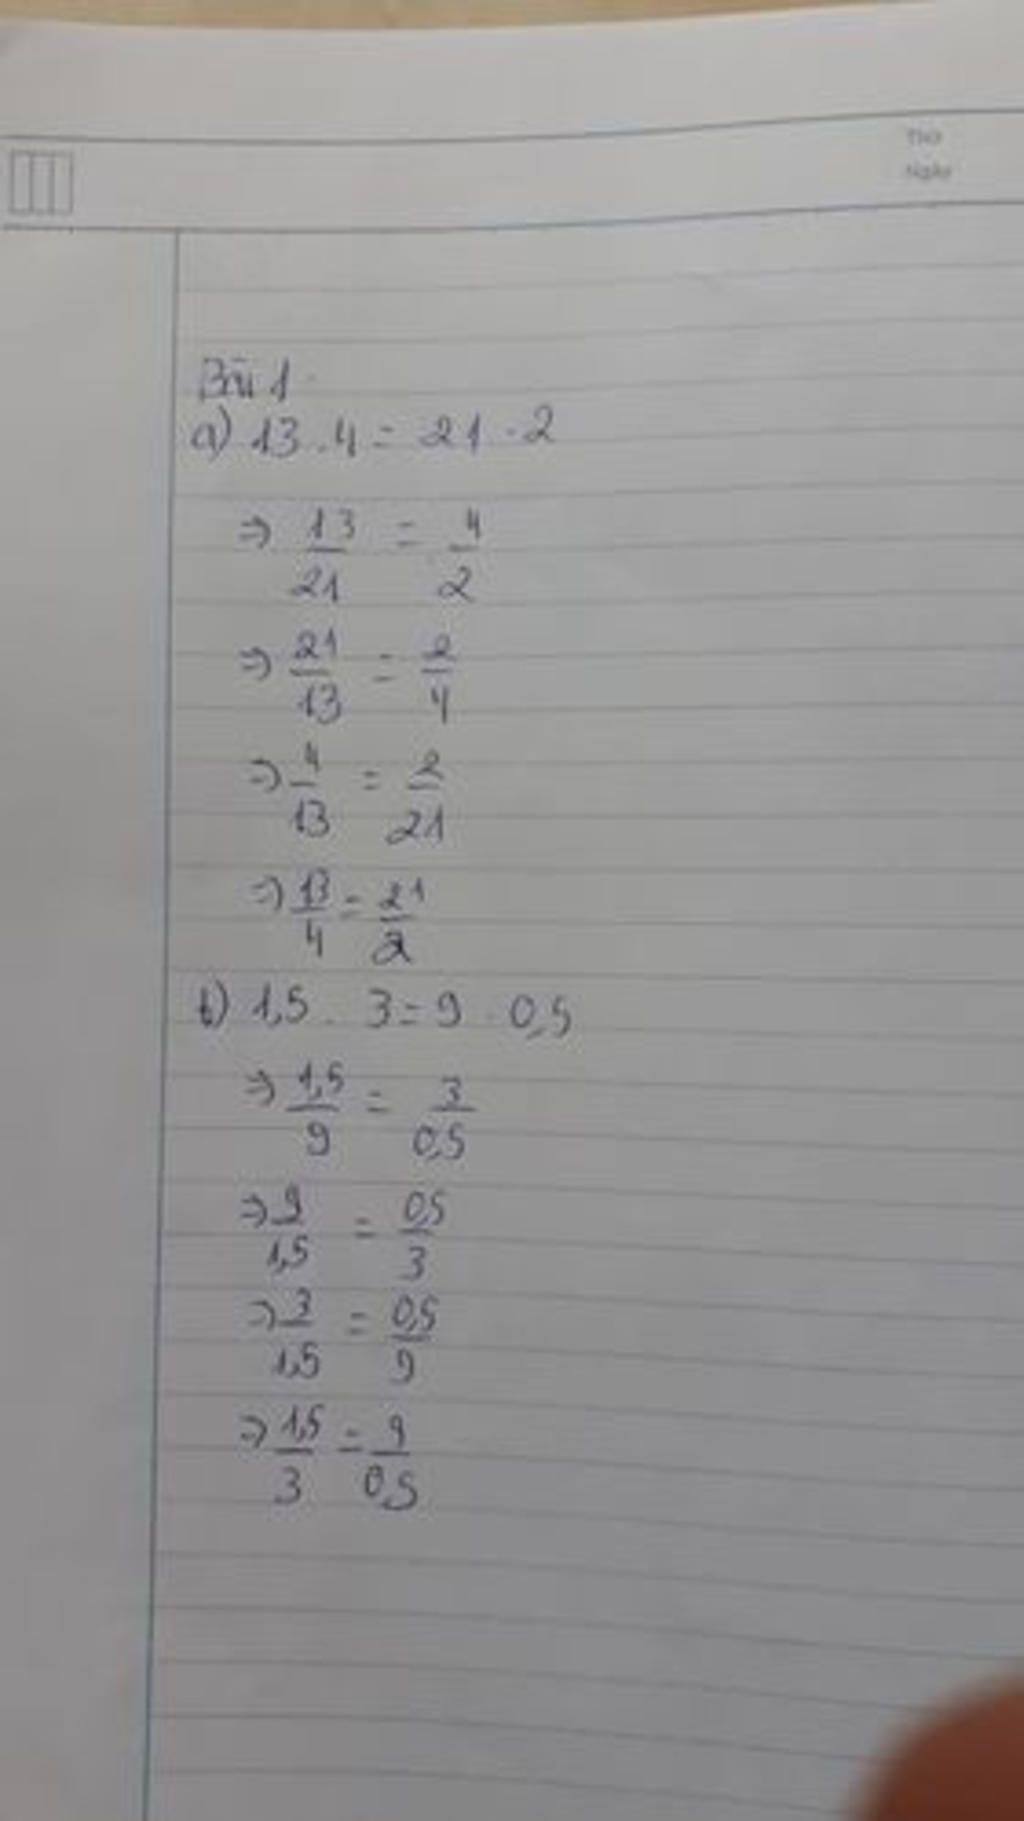 Thứ
Ngày
Bài 1
a) 13 . 4 = 21 . 2
=> 13/21 = 4/2
=> 21/13 = 2/4
=> 4/13 = 2/21
=> 13/4 = 21/2
b) 1,5 . 3 = 9 . 0,5
=> 1,5/9 = 3/0,5
=> 9/1,5 = 0,5/3
=> 3/1,5 = 0,5/9
=> 1,5/3 = 9/0,5